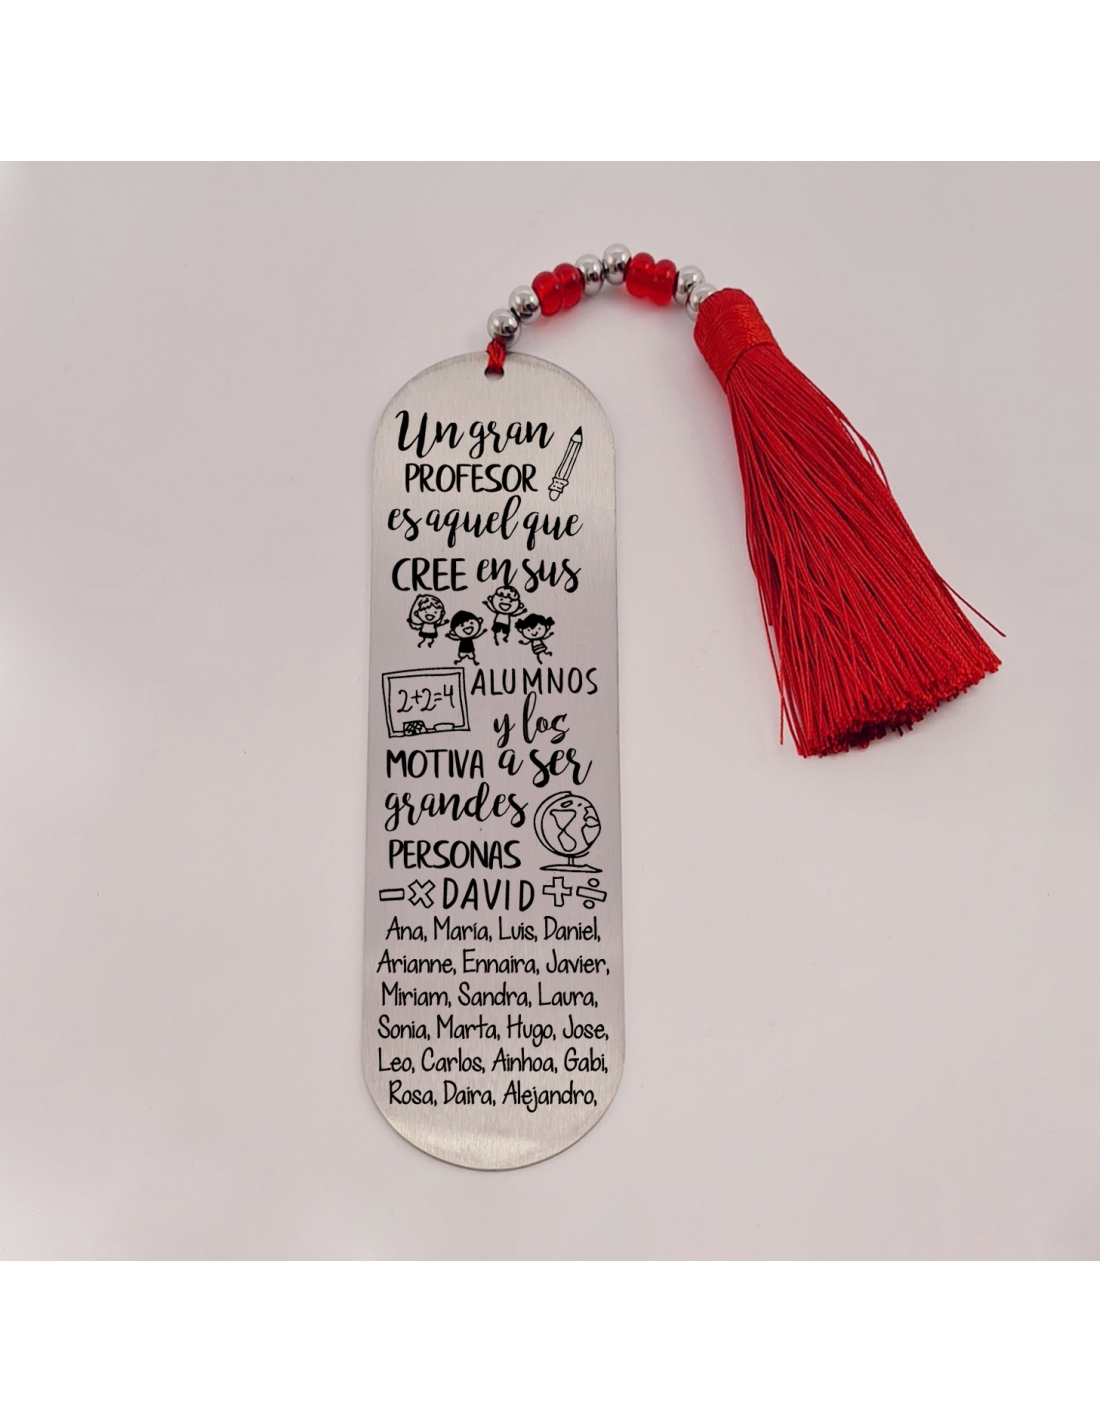 Un gran
PROFESOR
es aquel que
CREE en sus
2+2=4
ALUMNOS
y los
MOTIVA a ser
grandes
PERSONAS
-×DAVID+÷
Ana, María, Luis, Daniel,
Arianne, Ennaira, Javier,
Miriam, Sandra, Laura,
Sonia, Marta, Hugo, Jose,
Leo, Carlos, Ainhoa, Gabi,
Rosa, Daira, Alejandro,